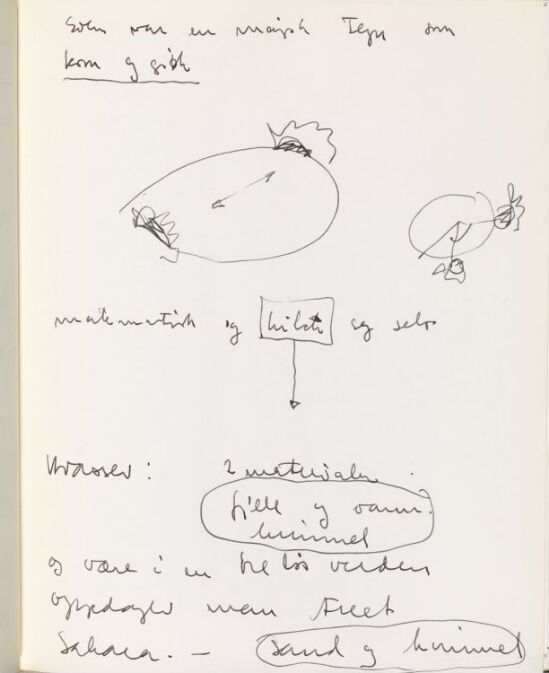 Solen var en magisk Tegn som
kom og gikk
matematisk og hvilte seg selv
2 materialer
fjell og vann
himmel
og være i en treløs verden
oppdager man treet
Sahara. — sand og himmel